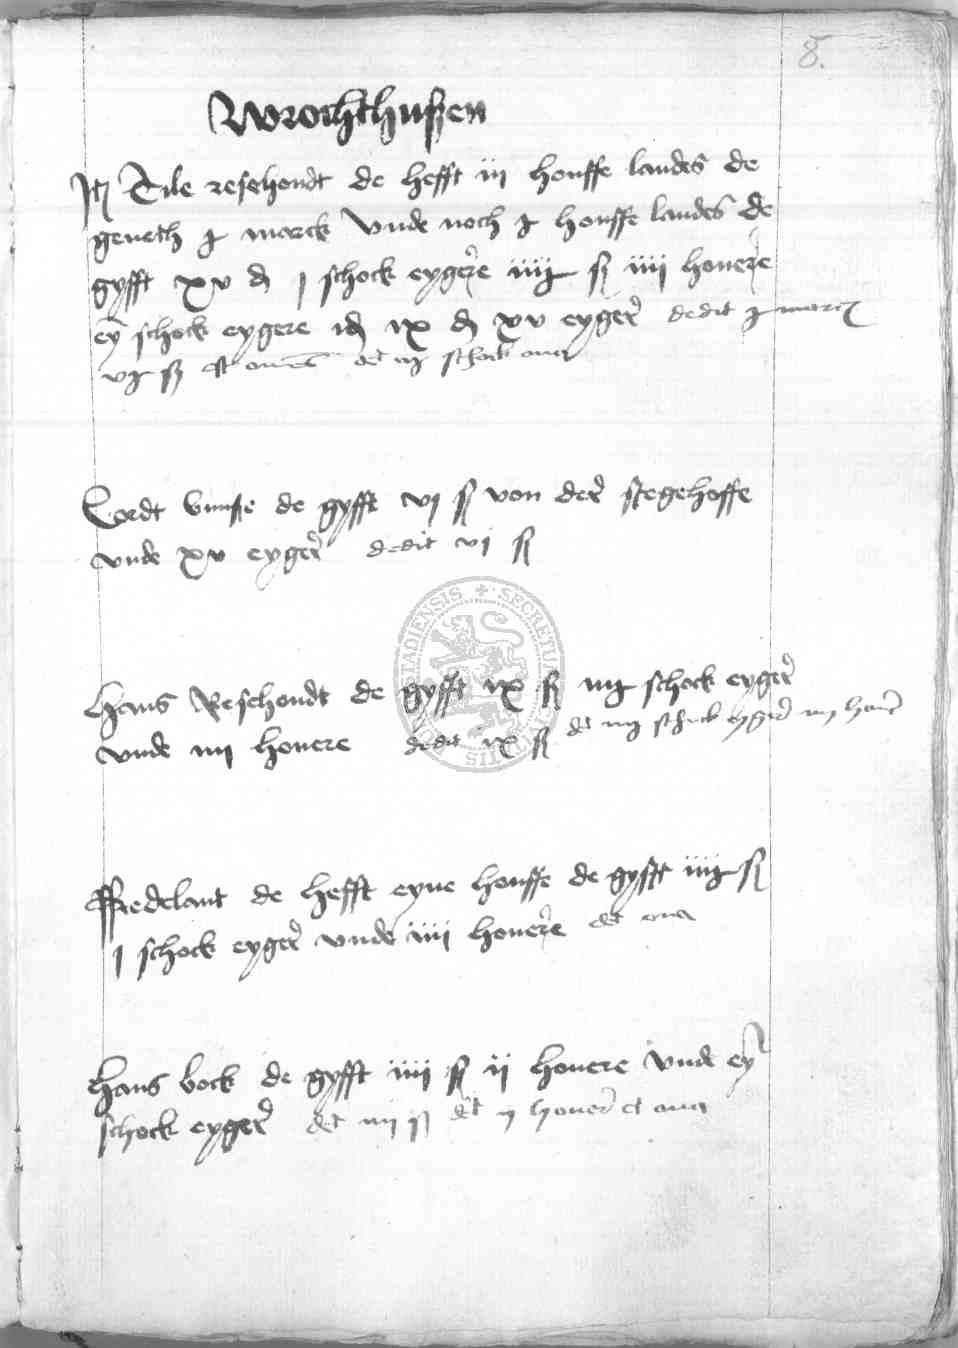 8.
Wrochthußen
Itē Tile resehondt de hefft iii houffe landes de
geueth j marck vnde noch j houffe landes de
gyfft xv d j schock eygere iiij ß iiii honere
ey schock eygere id ix d xv eyger dedit j marc
vj ß det iij schock oua
Cordt bunse de gyfft vi ß von der stegehoffe
vnde xv eyger dedit vi ß
hans Resehondt de gyfft ix ß iiij schock eyger
vnde iiii honere dedit ix ß dt iiij schock eyger iiij honer
ffredelant de hefft eyne houffe de gyfft iiij ß
j schock eyger vnde iiii honere det oua
hans bock de gyfft iiii ß ii honere vnde ey
schock eyger det iiii ß det ij honer et oua
SECRETU